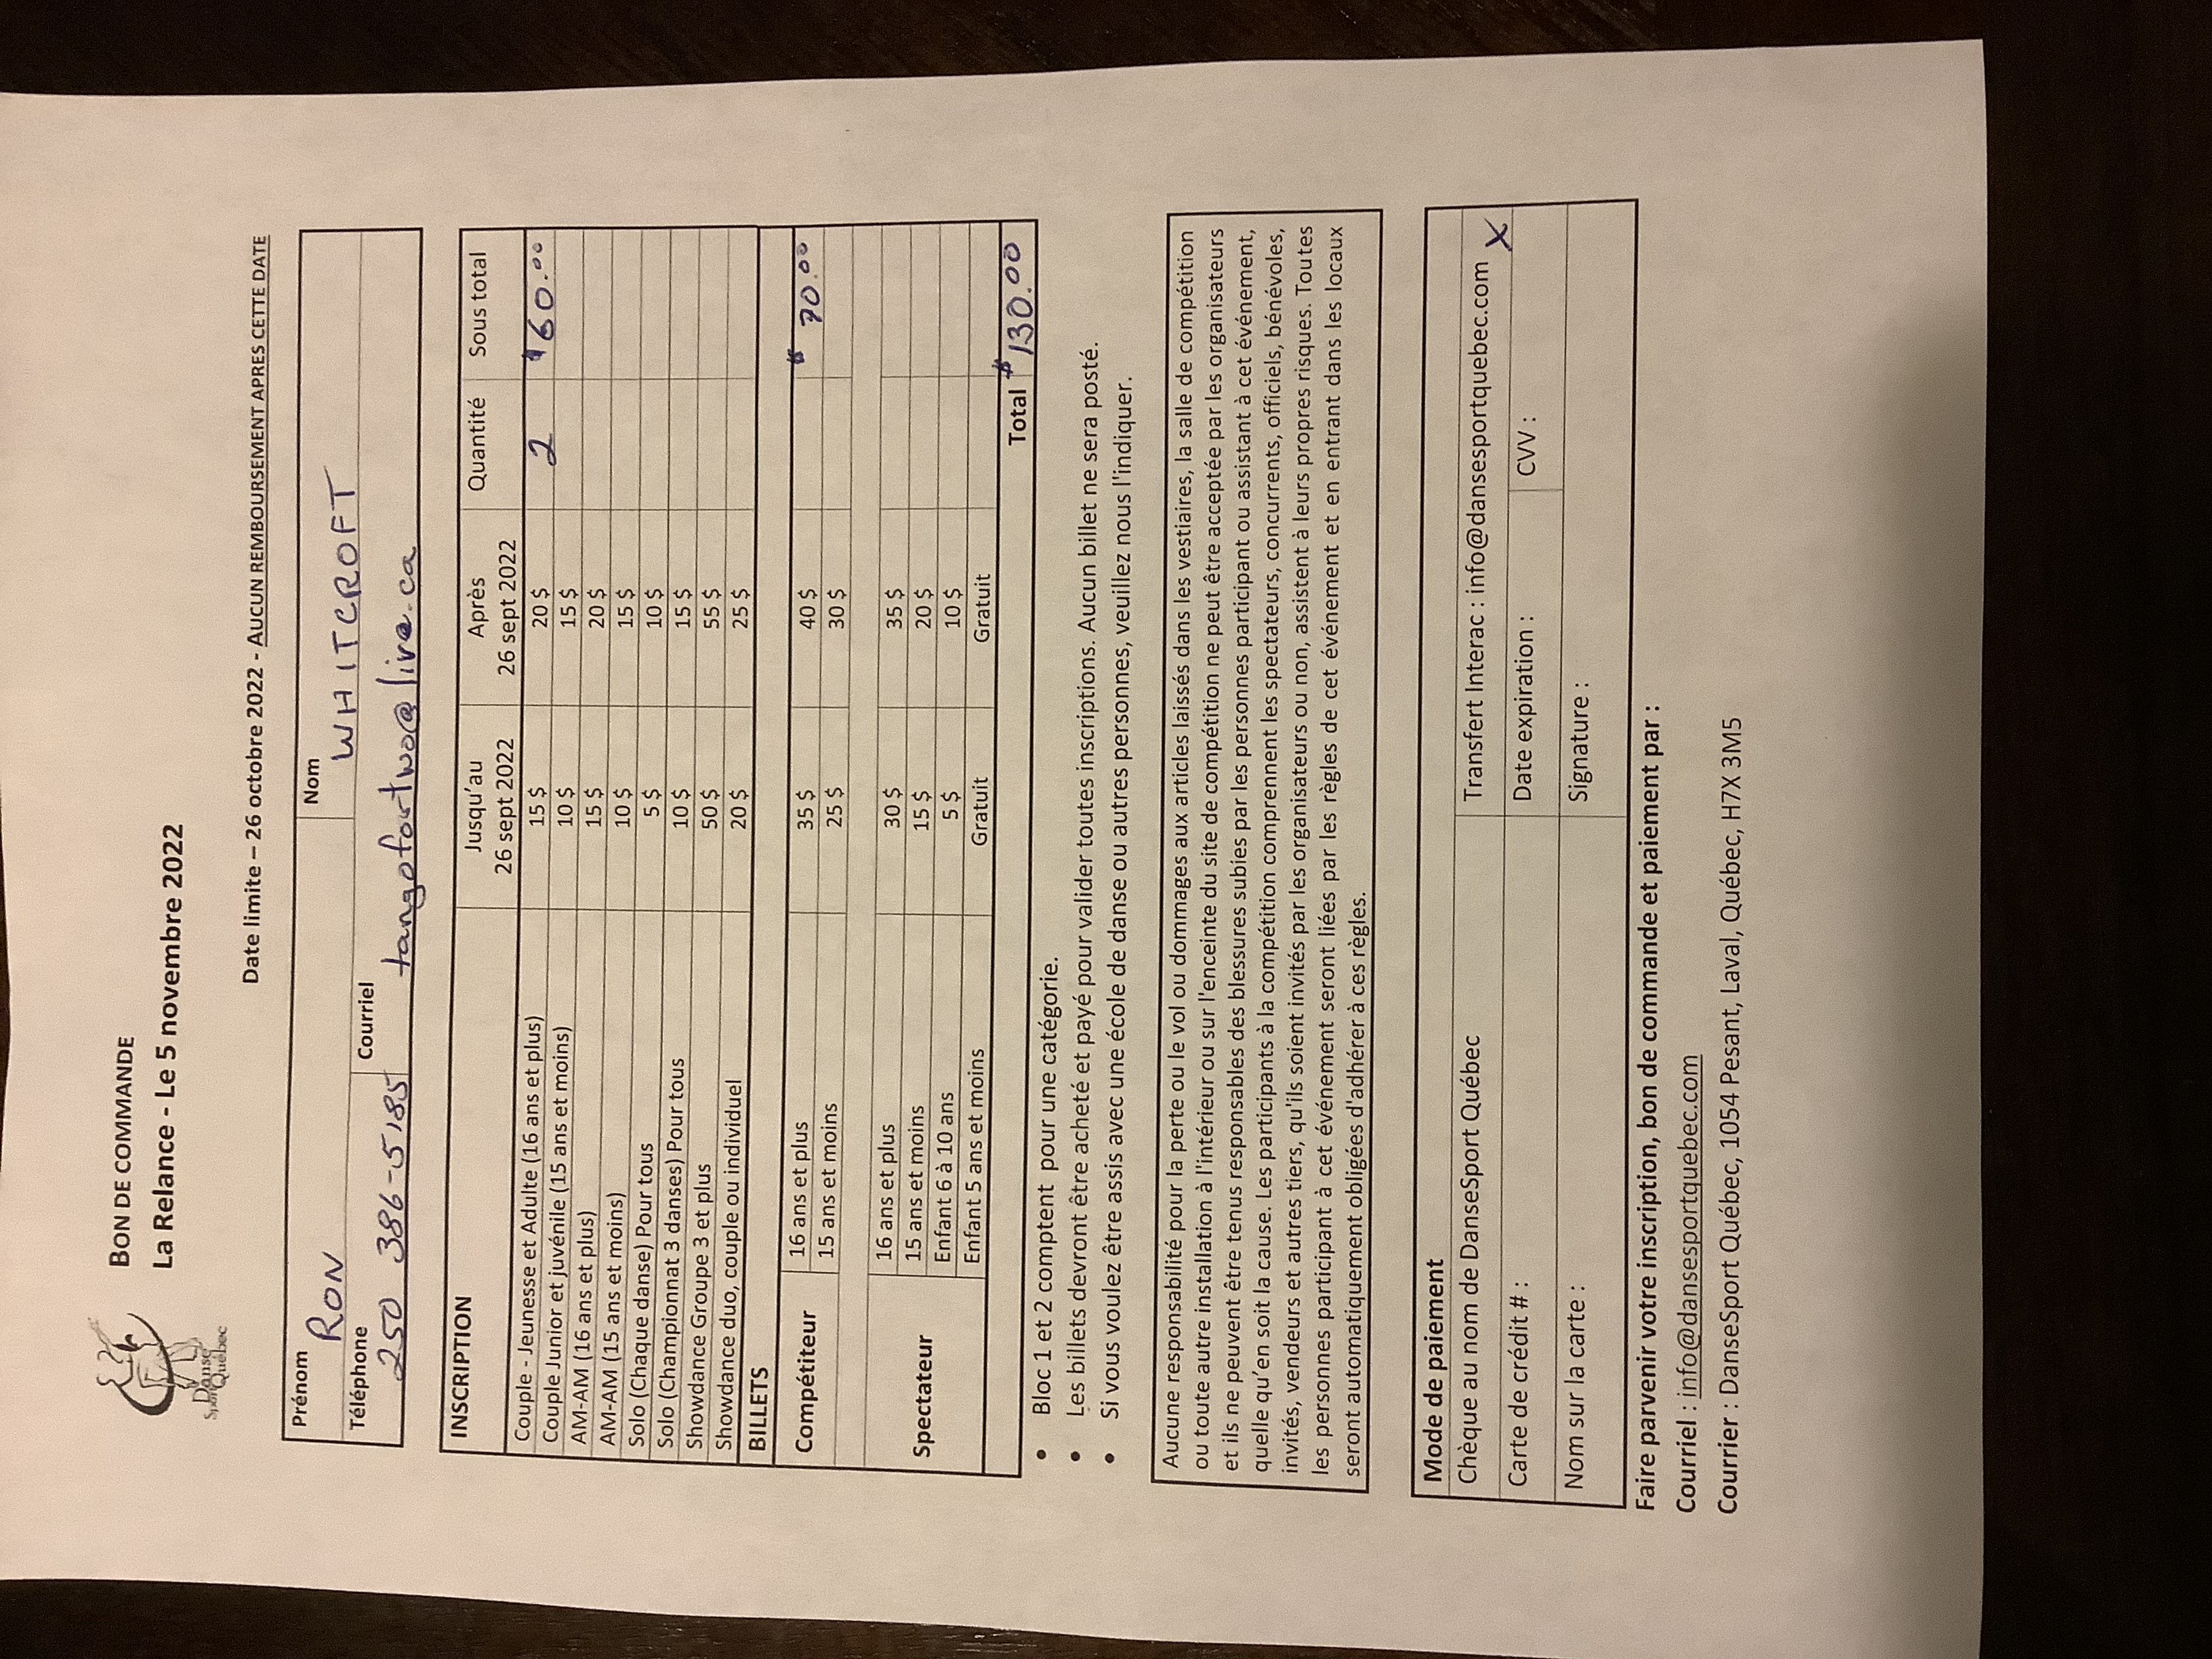 Danse
Sport Québec
BON DE COMMANDE
La Relance - Le 5 novembre 2022
Date limite – 26 octobre 2022 - AUCUN REMBOURSEMENT APRES CETTE DATE
Prénom Nom
RON WHITCROFT
Téléphone Courriel
250 386-5185 tangofortwo@live.ca
INSCRIPTION Jusqu'au 26 sept 2022 Après 26 sept 2022 Quantité Sous total
Couple - Jeunesse et Adulte (16 ans et plus) 15 $ 20 $ 2 $60.00
Couple Junior et juvénile (15 ans et moins) 10 $ 15 $
AM-AM (16 ans et plus) 15 $ 20 $
AM-AM (15 ans et moins) 10 $ 15 $
Solo (Chaque danse) Pour tous 5 $ 10 $
Solo (Championnat 3 danses) Pour tous 10 $ 15 $
Showdance Groupe 3 et plus 50 $ 55 $
Showdance duo, couple ou individuel 20 $ 25 $
BILLETS
Compétiteur 16 ans et plus 35 $ 40 $ $ 70.00
15 ans et moins 25 $ 30 $
Spectateur 16 ans et plus 30 $ 35 $
15 ans et moins 15 $ 20 $
Enfant 6 à 10 ans 5 $ 10 $
Enfant 5 ans et moins Gratuit Gratuit
Total $130.00
• Bloc 1 et 2 comptent pour une catégorie.
• Les billets devront être acheté et payé pour valider toutes inscriptions. Aucun billet ne sera posté.
• Si vous voulez être assis avec une école de danse ou autres personnes, veuillez nous l'indiquer.
Aucune responsabilité pour la perte ou le vol ou dommages aux articles laissés dans les vestiaires, la salle de compétition
ou toute autre installation à l'intérieur ou sur l'enceinte du site de compétition ne peut être acceptée par les organisateurs
et ils ne peuvent être tenus responsables des blessures subies par les personnes participant ou assistant à cet événement,
quelle qu'en soit la cause. Les participants à la compétition comprennent les spectateurs, concurrents, officiels, bénévoles,
invités, vendeurs et autres tiers, qu'ils soient invités par les organisateurs ou non, assistent à leurs propres risques. Toutes
les personnes participant à cet événement seront liées par les règles de cet événement et en entrant dans les locaux
seront automatiquement obligées d'adhérer à ces règles.
Mode de paiement
Chèque au nom de DanseSport Québec Transfert Interac : info@dansesportquebec.com X
Carte de crédit # : Date expiration : CVV :
Nom sur la carte : Signature :
Faire parvenir votre inscription, bon de commande et paiement par :
Courriel : info@dansesportquebec.com
Courrier : DanseSport Québec, 1054 Pesant, Laval, Québec, H7X 3M5